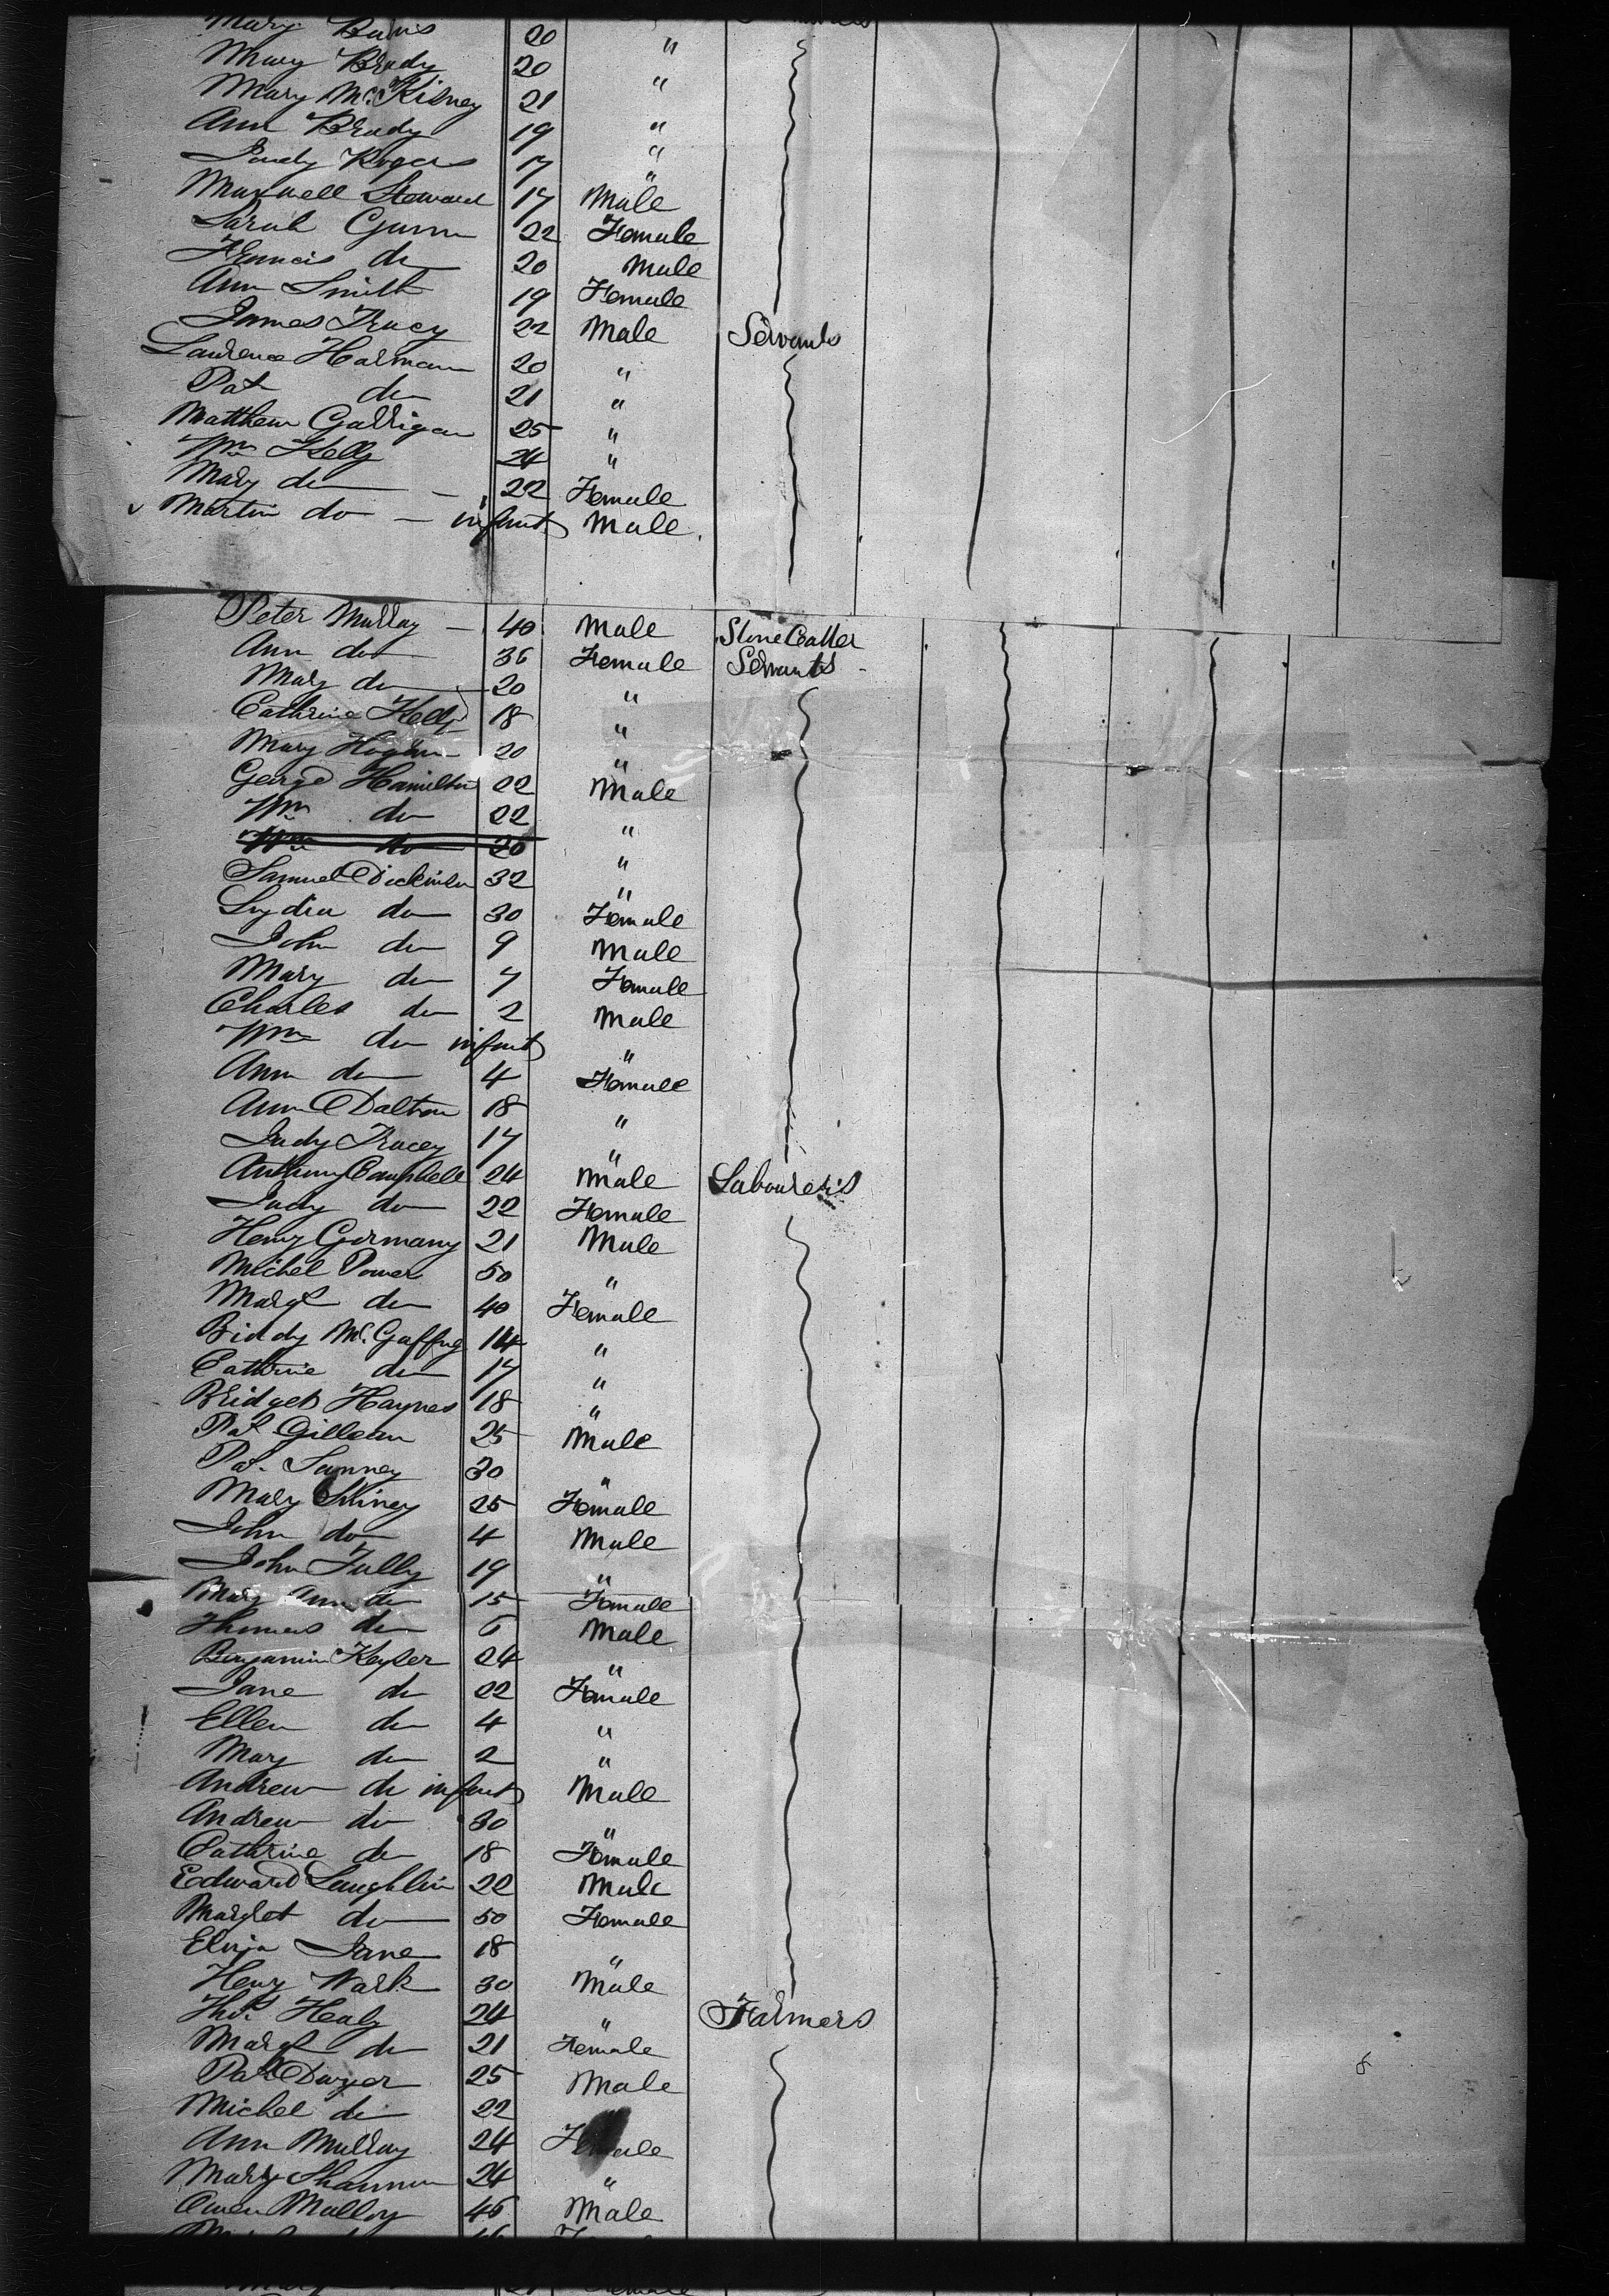 Mary Burns 20 "
Mary Brady 20 "
Mary McKisney 21 "
Ann Brady 19 "
Judy Rogers 17 "
Maxwell Steward 17 Male
Sarah Gunn 22 Female
Francis do 20 Male
Ann Smith 19 Female
James Tracy 22 Male Servants
Laurence Harman 20 "
Pat do 21 "
Matthew Galligan 25 "
Wm Kelly 24 "
Mary do 22 Female
Martin do infant Male
Peter Murray 40 Male Stone Cutter
Ann do 36 Female Servants
Mary do 20 "
Cathrine Kelly 18 "
Mary Hogan 20 "
George Hamilton 22 Male
Wm do 22 "
Wm do 20 "
Samuel Dickinson 32 "
Lydia do 30 Female
John do 9 Male
Mary do 7 Female
Charles do 2 Male
Wm do infant "
Ann do 4 Female
Ann Dalton 18 "
Judy Tracey 17 "
Anthony Campbell 24 Male Labourers
Judy do 22 Female
Henry Germany 21 Male
Michel Power 50 "
Margt do 40 Female
Biddy McGaffny 14 "
Cathrine do 17 "
Bridget Haynes 18 "
Pat Gillean 25 Male
Pat. Sunney 30 "
Mary 25 Female
John do 4 Male
John Fully 19 "
Mary Ann do 15 Female
Thomas do 6 Male
Benjamin Keyser 24 "
Jane do 22 Female
Ellen do 4 "
Mary do 2 "
Andrew do infant Male
Andrew do 30 "
Cathrine do 18 Female
Edward Laughlin 22 Male
Margret do 50 Female
Eliza Jane 18 "
Henry Wark 30 Male
Thos. Healy 24 " Farmers
Margt do 21 Female
Pat Dwyer 25 Male
Michel do 22
Ann Murray 24 Female
Mary Shannon 24 "
Owen Mulloy 46 Male